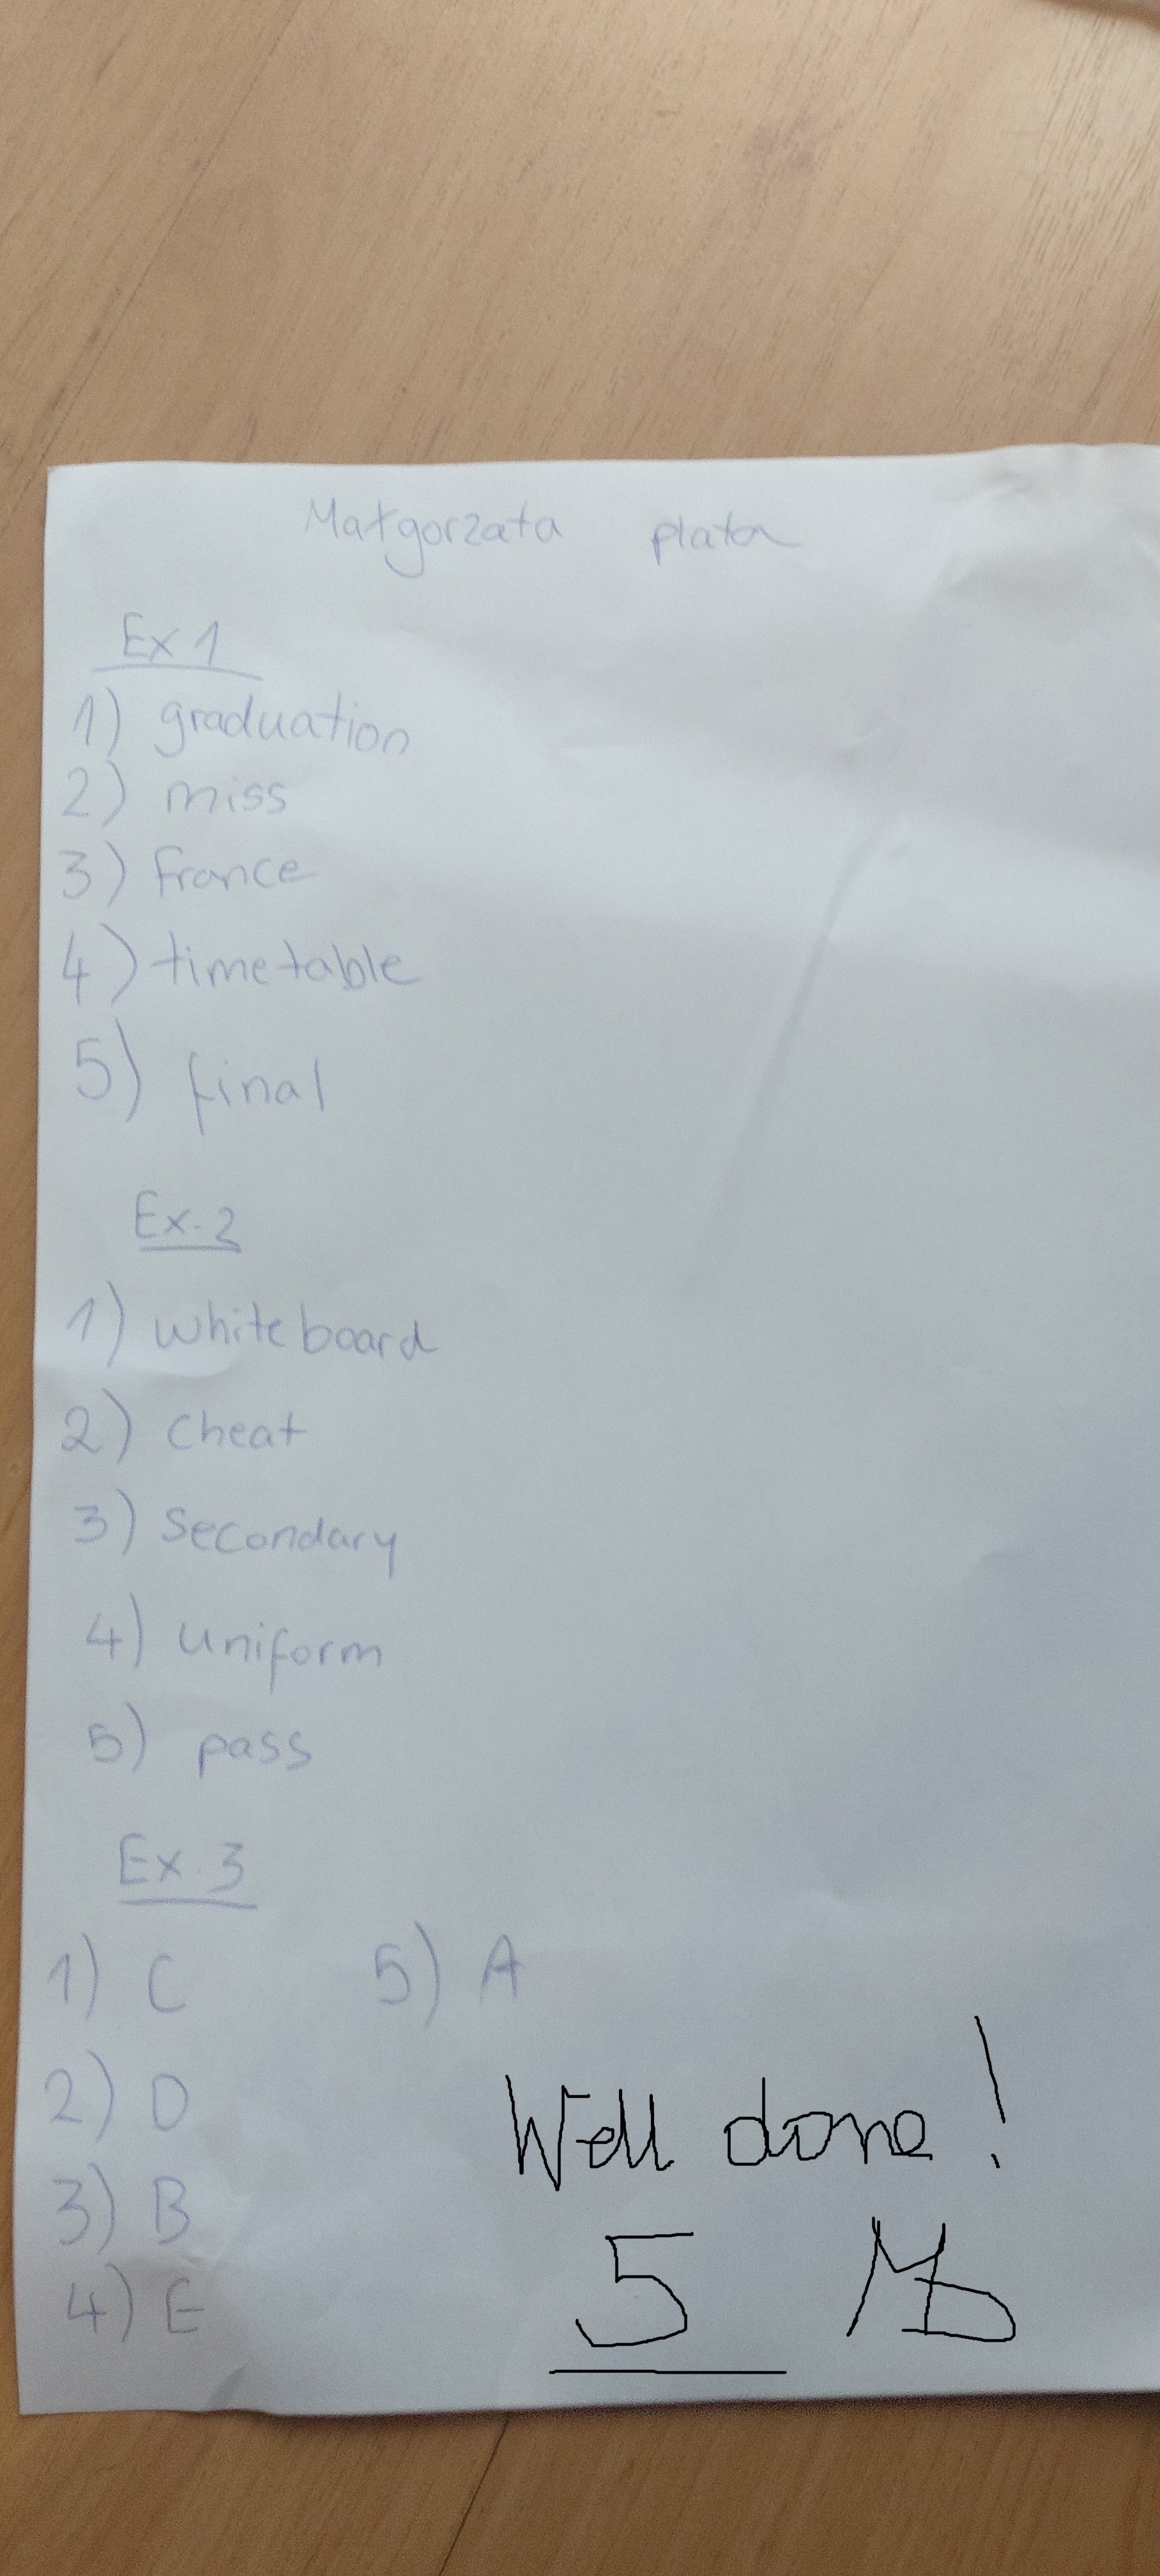 Małgorzata plata
Ex 1
1) graduation
2) miss
3) France
4) timetable
5) final
Ex. 2
1) whiteboard
2) cheat
3) secondary
4) uniform
5) pass
Ex. 3
1) C 5) A
2) D
3) B
4) E
Well done!
5 MD